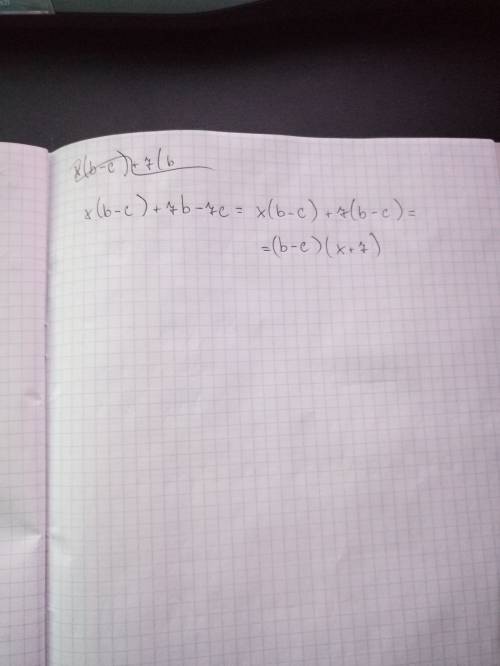 x(b-c)+7(b
x(b-c)+7b-7c = x(b-c)+7(b-c) =
=(b-c)(x+7)